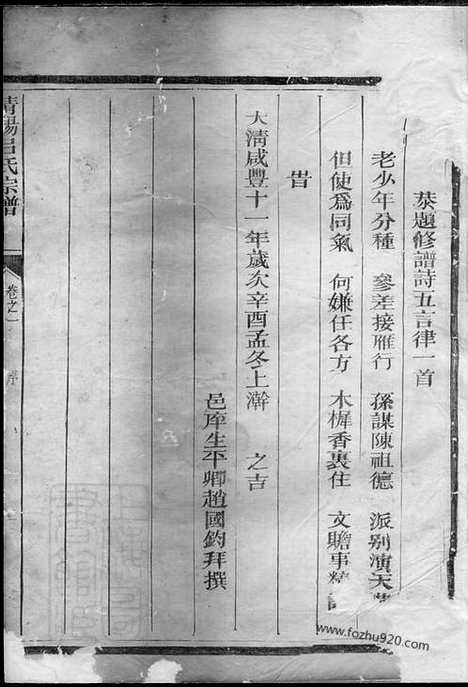 恭題修譜詩五言律一首
老少年分種　參差接雁行　孫謀陳祖德　派別演天
但使爲同氣　何嫌任各方　木樨香裏住　文瞻事
旹
大清咸豐十一年歲次辛酉孟冬上澣　之吉
邑庠生平卿趙國鈞拜撰
清陽呂氏宗譜
卷之一
序
www.fozhu920.com